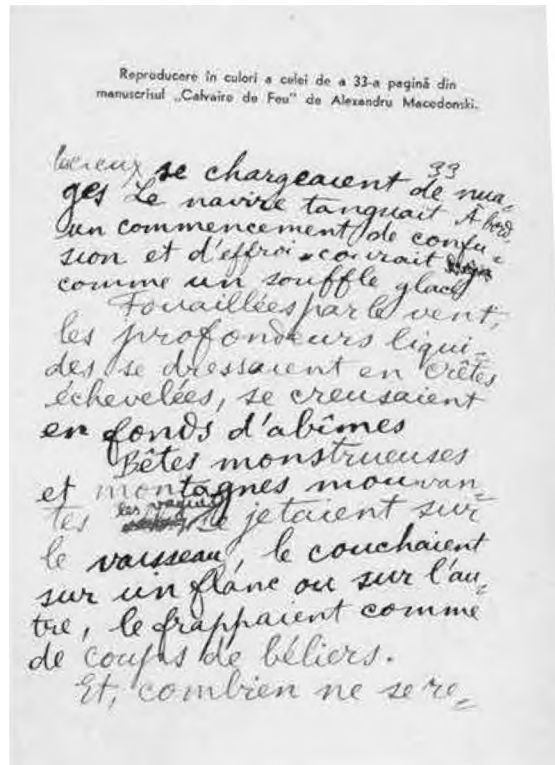 Reproducere în culori a celei de a 33-a pagină din
manuscrisul „Calvaire de Feu" de Alexandru Macedonski.
33
se chargeaient de nua-
ges Le navire tanguait À bord
un commencement de confu-
sion et d'effroi courait
comme un souffle glacé
Fouaillées par le vent,
les profondeurs liqui-
des se dressaient en crêtes
échevelées, se creusaient
en fonds d'abîmes
Bêtes monstrueuses
et montagnes mouvan-
tes les vagues se jetaient sur
le vaisseau, le couchaient
sur un flanc ou sur l'au-
tre, le frappaient comme
de coups de béliers.
Et, combien ne se re-